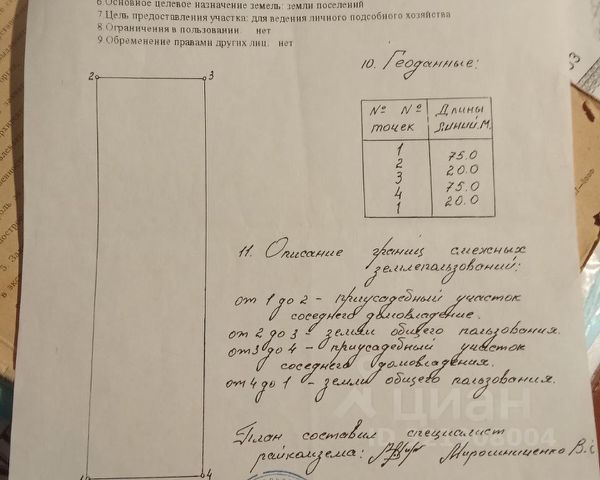 6 Основное целевое назначение земель: земли поселений
7 Цель предоставления участка: для ведения личного подсобного хозяйства
8 Ограничения в пользовании: нет
9 Обременение правами других лиц: нет
10. Геоданные:
2 3
№ № Длины
точек линий м.
1
75.0
2
20.0
3
75.0
4
20.0
1
11. Описание границ смежных
землепользований:
от 1 до 2 - приусадебный участок
соседнего домовладение.
от 2 до 3 - земли общего пользования.
от 3 до 4 - приусадебный участок
соседнего домовладения.
от 4 до 1 - земли общего пользования.
циан
План составил специалист
райкомзема: Мирошниченко В.
4